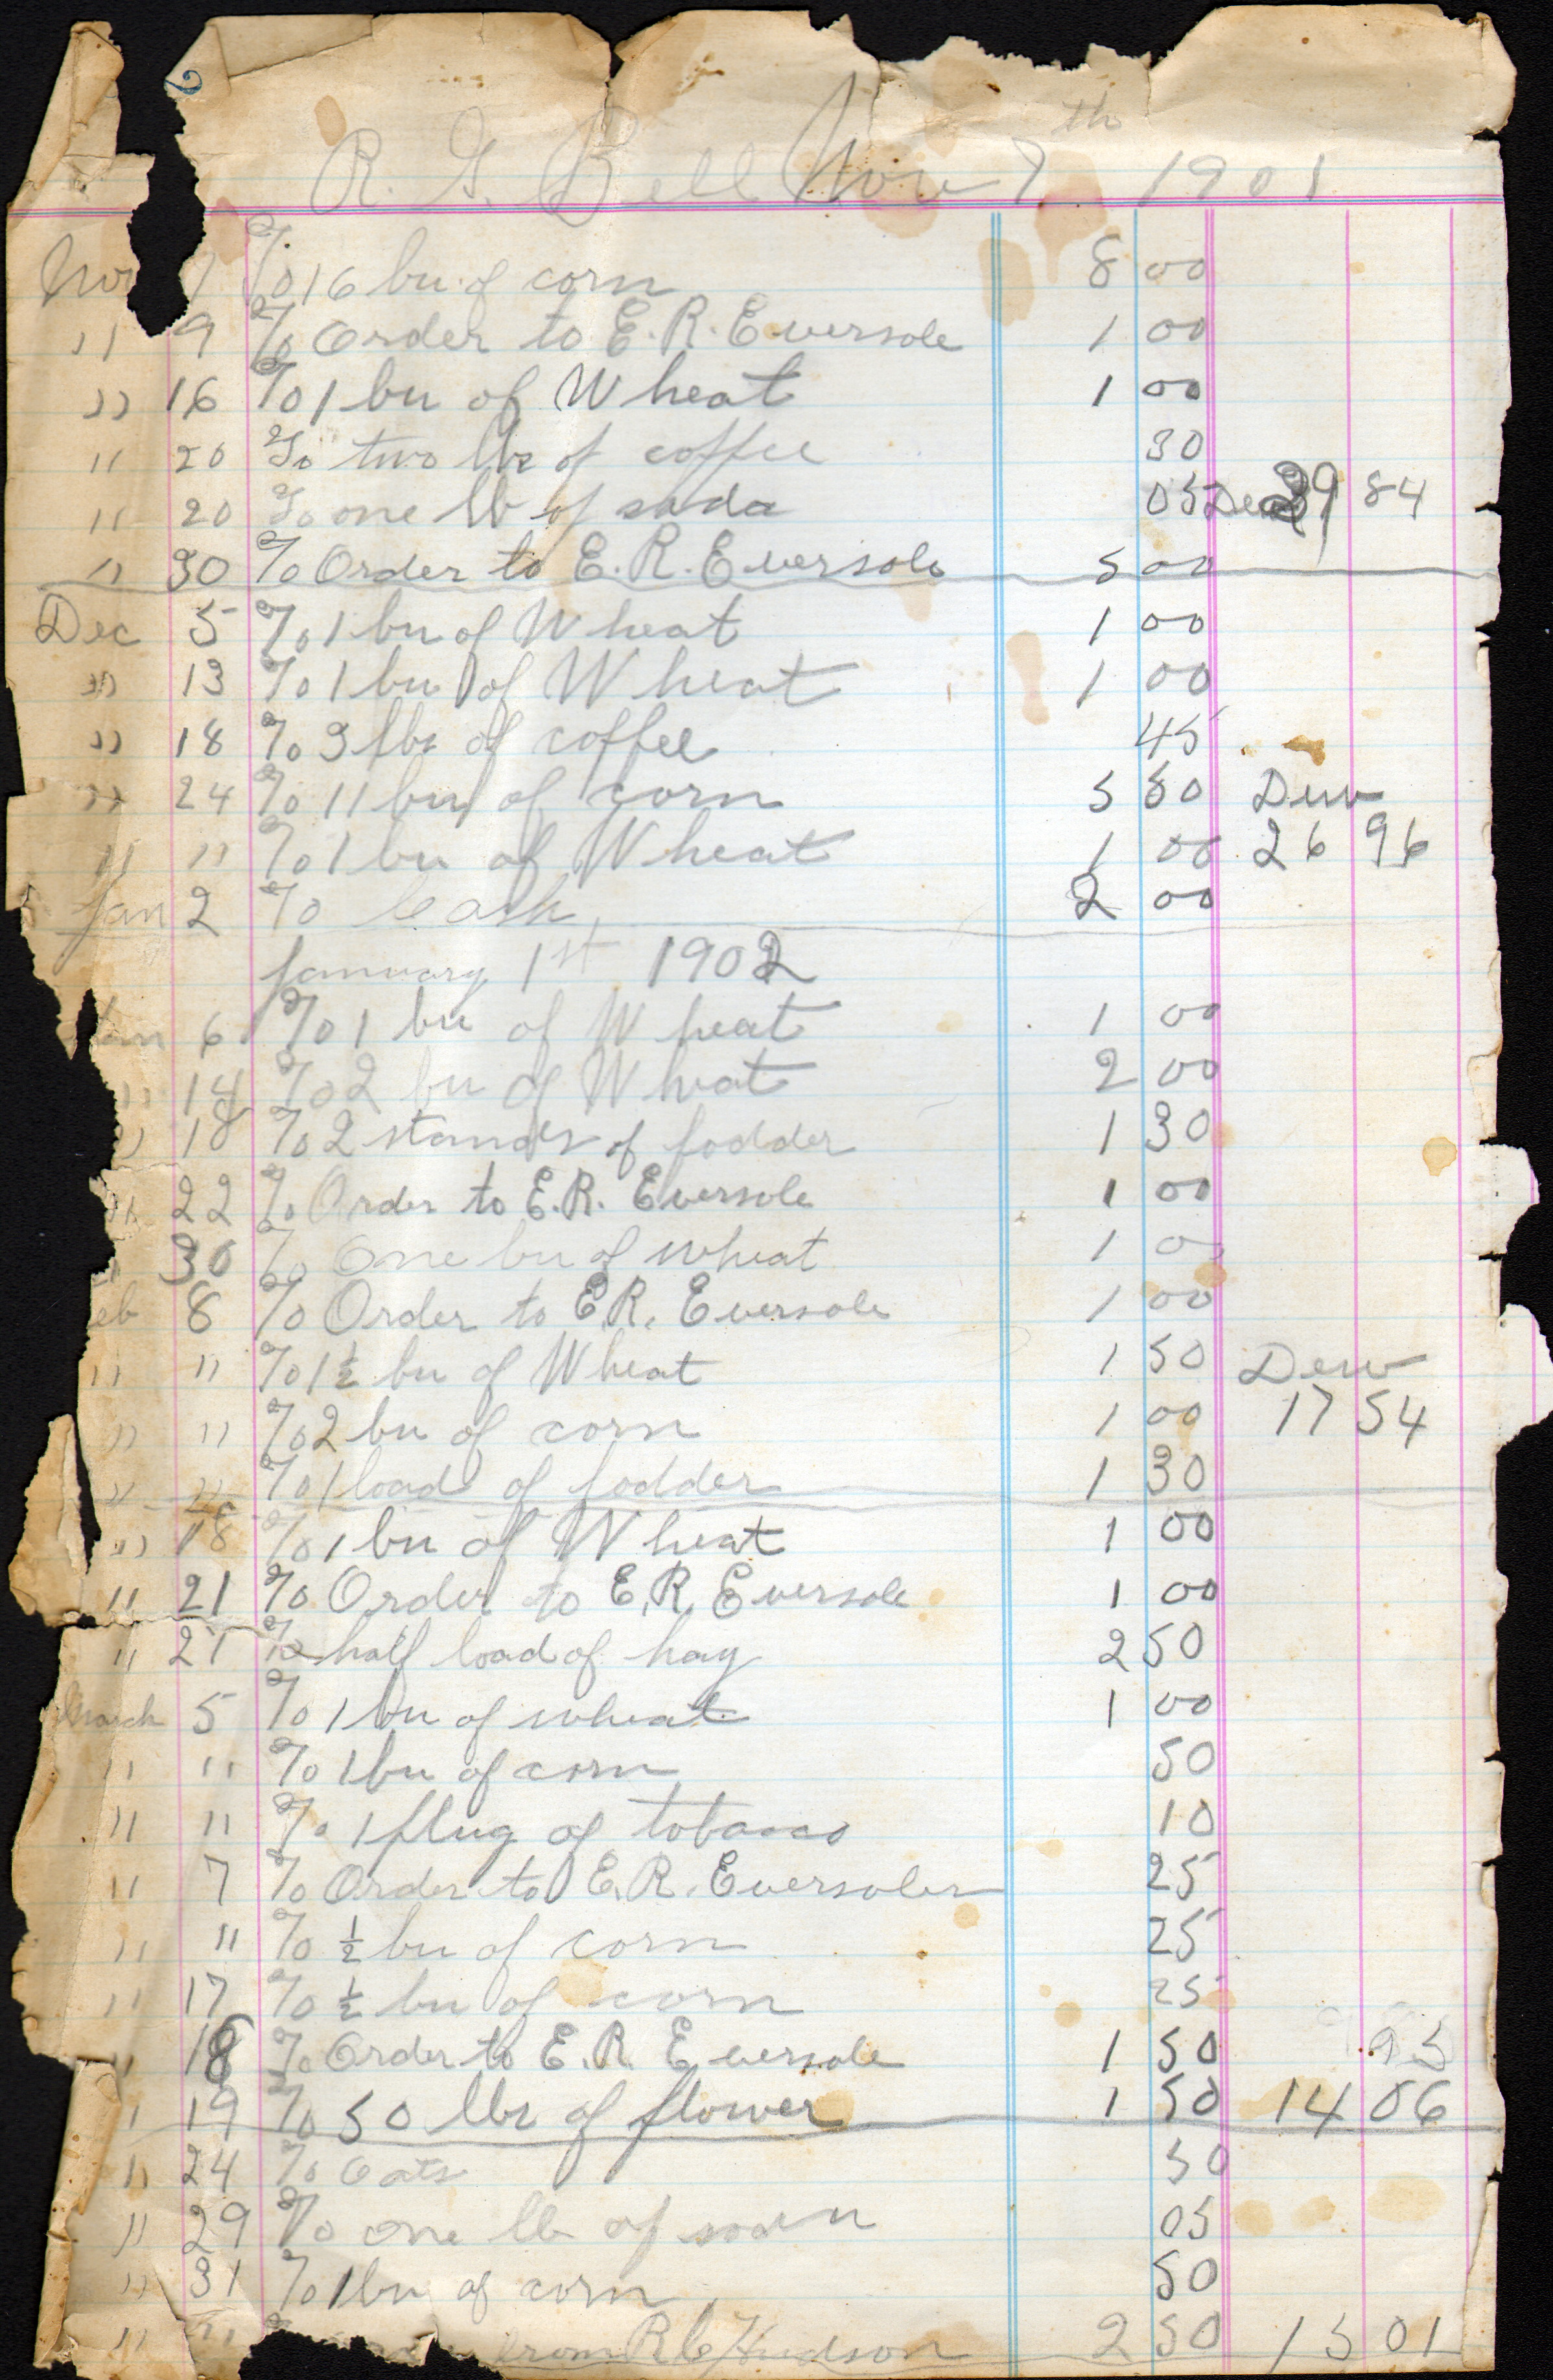 2
R. G. Bell Nov 7th 1901
Nov 7 To 16 bu of corn 8 00
" 9 To Order to E. R. Eversole 1 00
" 16 To 1 bu of Wheat 1 00
" 20 To two lbs of coffee 30
" 20 To one lb of soda 05 39 84
" 30 To Order to E. R. Eversole 5 00
Dec 5 To 1 bu of Wheat 1 00
" 13 To 1 bu of Wheat 1 00
" 18 To 3 lbs of coffee 45
" 24 To 11 bu of corn 5 50 Duw
" " To 1 bu of Wheat 1 00 26 96
Jan 2 To Cash 2 00
January 1st 1902
Jan 6 To 1 bu of Wheat 1 00
" 14 To 2 bu of Wheat 2 00
" 18 To 2 stands of fodder 1 30
" 22 To Order to E. R. Eversole 1 00
" 30 To One bu of wheat 1 00
eb 8 To Order to E. R. Eversole 1 00
" " To 1 1/2 bu of Wheat 1 50 Dew
" " To 2 bu of corn 1 00 17 54
" " To 1 load of fodder 1 30
" 18 To 1 bu of Wheat 1 00
" 21 To Order to E. R. Eversole 1 00
" 21 To half load of hay 2 50
March 5 To 1 bu of wheat 1 00
" " To 1 bu of corn 50
" " To 1 plug of tobacco 10
" 7 To Order to E. R. Eversoler 25
" " To 1/2 bu of corn 25
" 17 To 1/2 bu of corn 25
" 18 To Order to E. R. Eversole 1 50
" 19 To 50 lbs of flower 1 50 14 06
" 24 To Oats 50
" 29 To one lb of soda 05
" 31 To 1 bu of corn 50
" " from R C Hudson 2 50 15 01